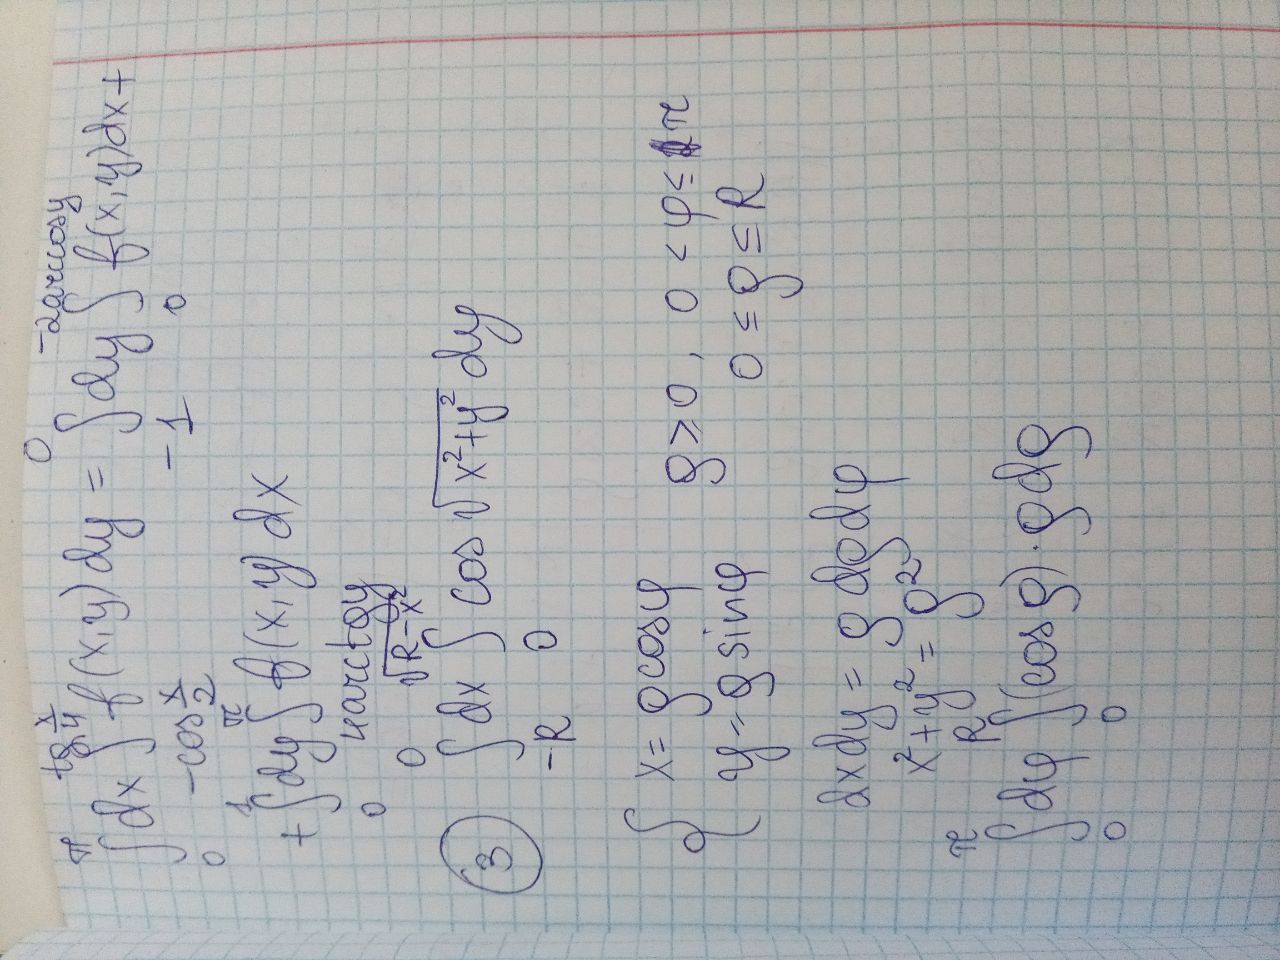 ∫₀^π dx ∫_{-cos x/2}^{tg x/4} f(x,y) dy = ∫_{-1}^0 dy ∫₀^{-2arccosy} f(x,y)dx +
+ ∫₀^1 dy ∫_{4arctgy}^π f(x,y) dx
③ ∫_{-R}^0 dx ∫₀^{√(R-x²)} cos √(x²+y²) dy
{ x = ρcosφ
y = ρ sinφ
ρ ≥ 0, 0 < φ ≤ π
0 ≤ ρ ≤ R
dxdy = ρ dρdφ
x²+y² = ρ²
∫₀^π dφ ∫₀^R (cos ρ)·ρdρ